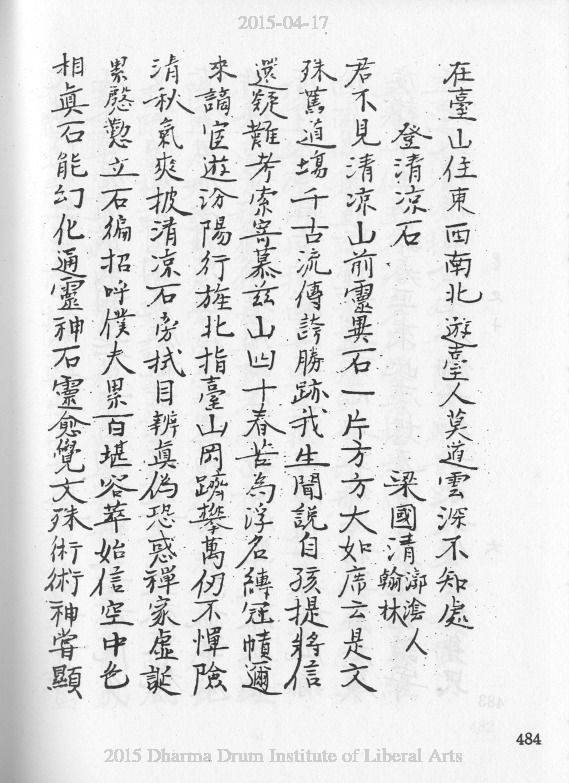 2015-04-17
在臺山住東西南北遊臺人莫道雲深不知處
登清涼石 梁國清 漷滄人 翰林
君不見清凉山前靈異石一片方方大如席云是文
殊萬道塲千古流傳誇勝跡我生聞說自孩提將信
還疑難考索寄慕兹山四十春苦為浮名縛冠幘邇
來謫宦遊汾陽行旌北指臺山岡躋攀萬仞不憚險
清秋氣爽披清凉石旁拭目辨真偽恐惑禪家虛誕
累慇懃立石徧招呼僕夫累百堪容萃始信空中色
相眞石能幻化通靈神石靈愈覺文殊術術神嘗顯
484
2015 Dharma Drum Institute of Liberal Arts